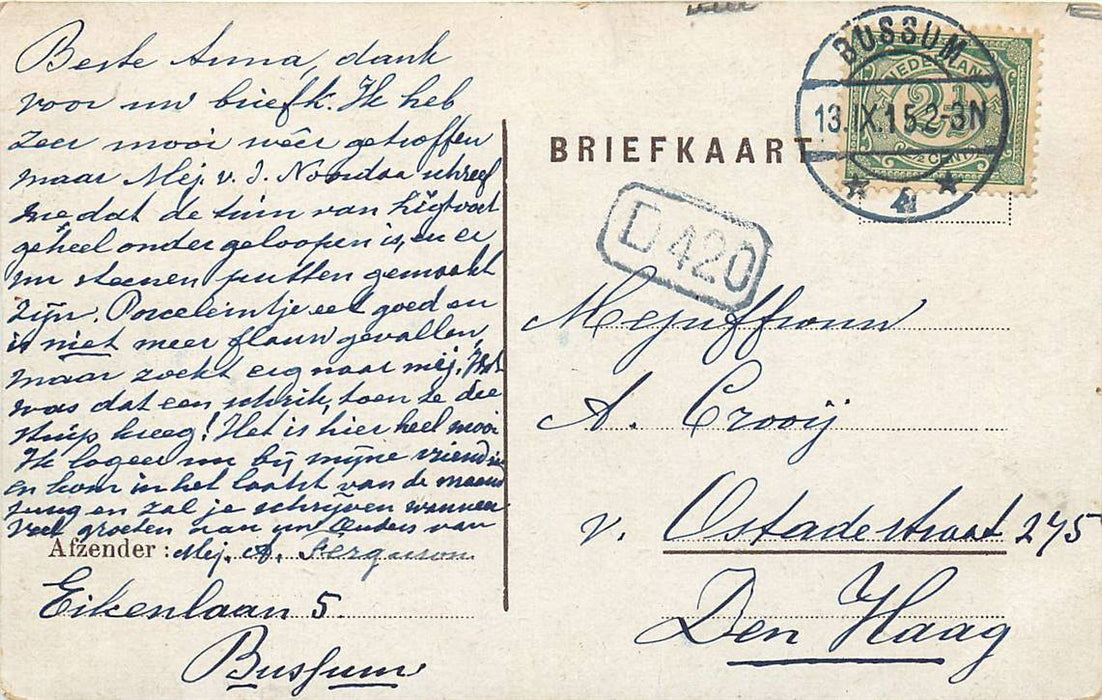 Beste Anna, dank
voor uw briefk. Ik heb
zeer mooi wéér getroffen
maar Mej. v. d. Noordaa schreef
me dat de tuin van
geheel ondergeloopen is, en er
nu steenen putten gemaakt
zijn. Porceleintje eet goed en
is niet meer flauw gevallen,
maar zoekt erg naar mij. Het
was dat een schrik, toen ze die
stuip kreeg! Het is hier heel mooi
Ik logeer nu bij mijne vriendin
en kom in het laatst van de maand
terug en zal je schrijven wanneer
Veel groeten aan uw Ouders van
Afzender: Mej. A. Ferguson
Eikenlaan 5.
Bussum
BRIEFKAART
BUSSUM
13.IX.15.2-3N
4
NEDERLAND
2½
CENT
D420
Mejuffrouw
A. Crooij
v. Ostadestraat 275
Den Haag